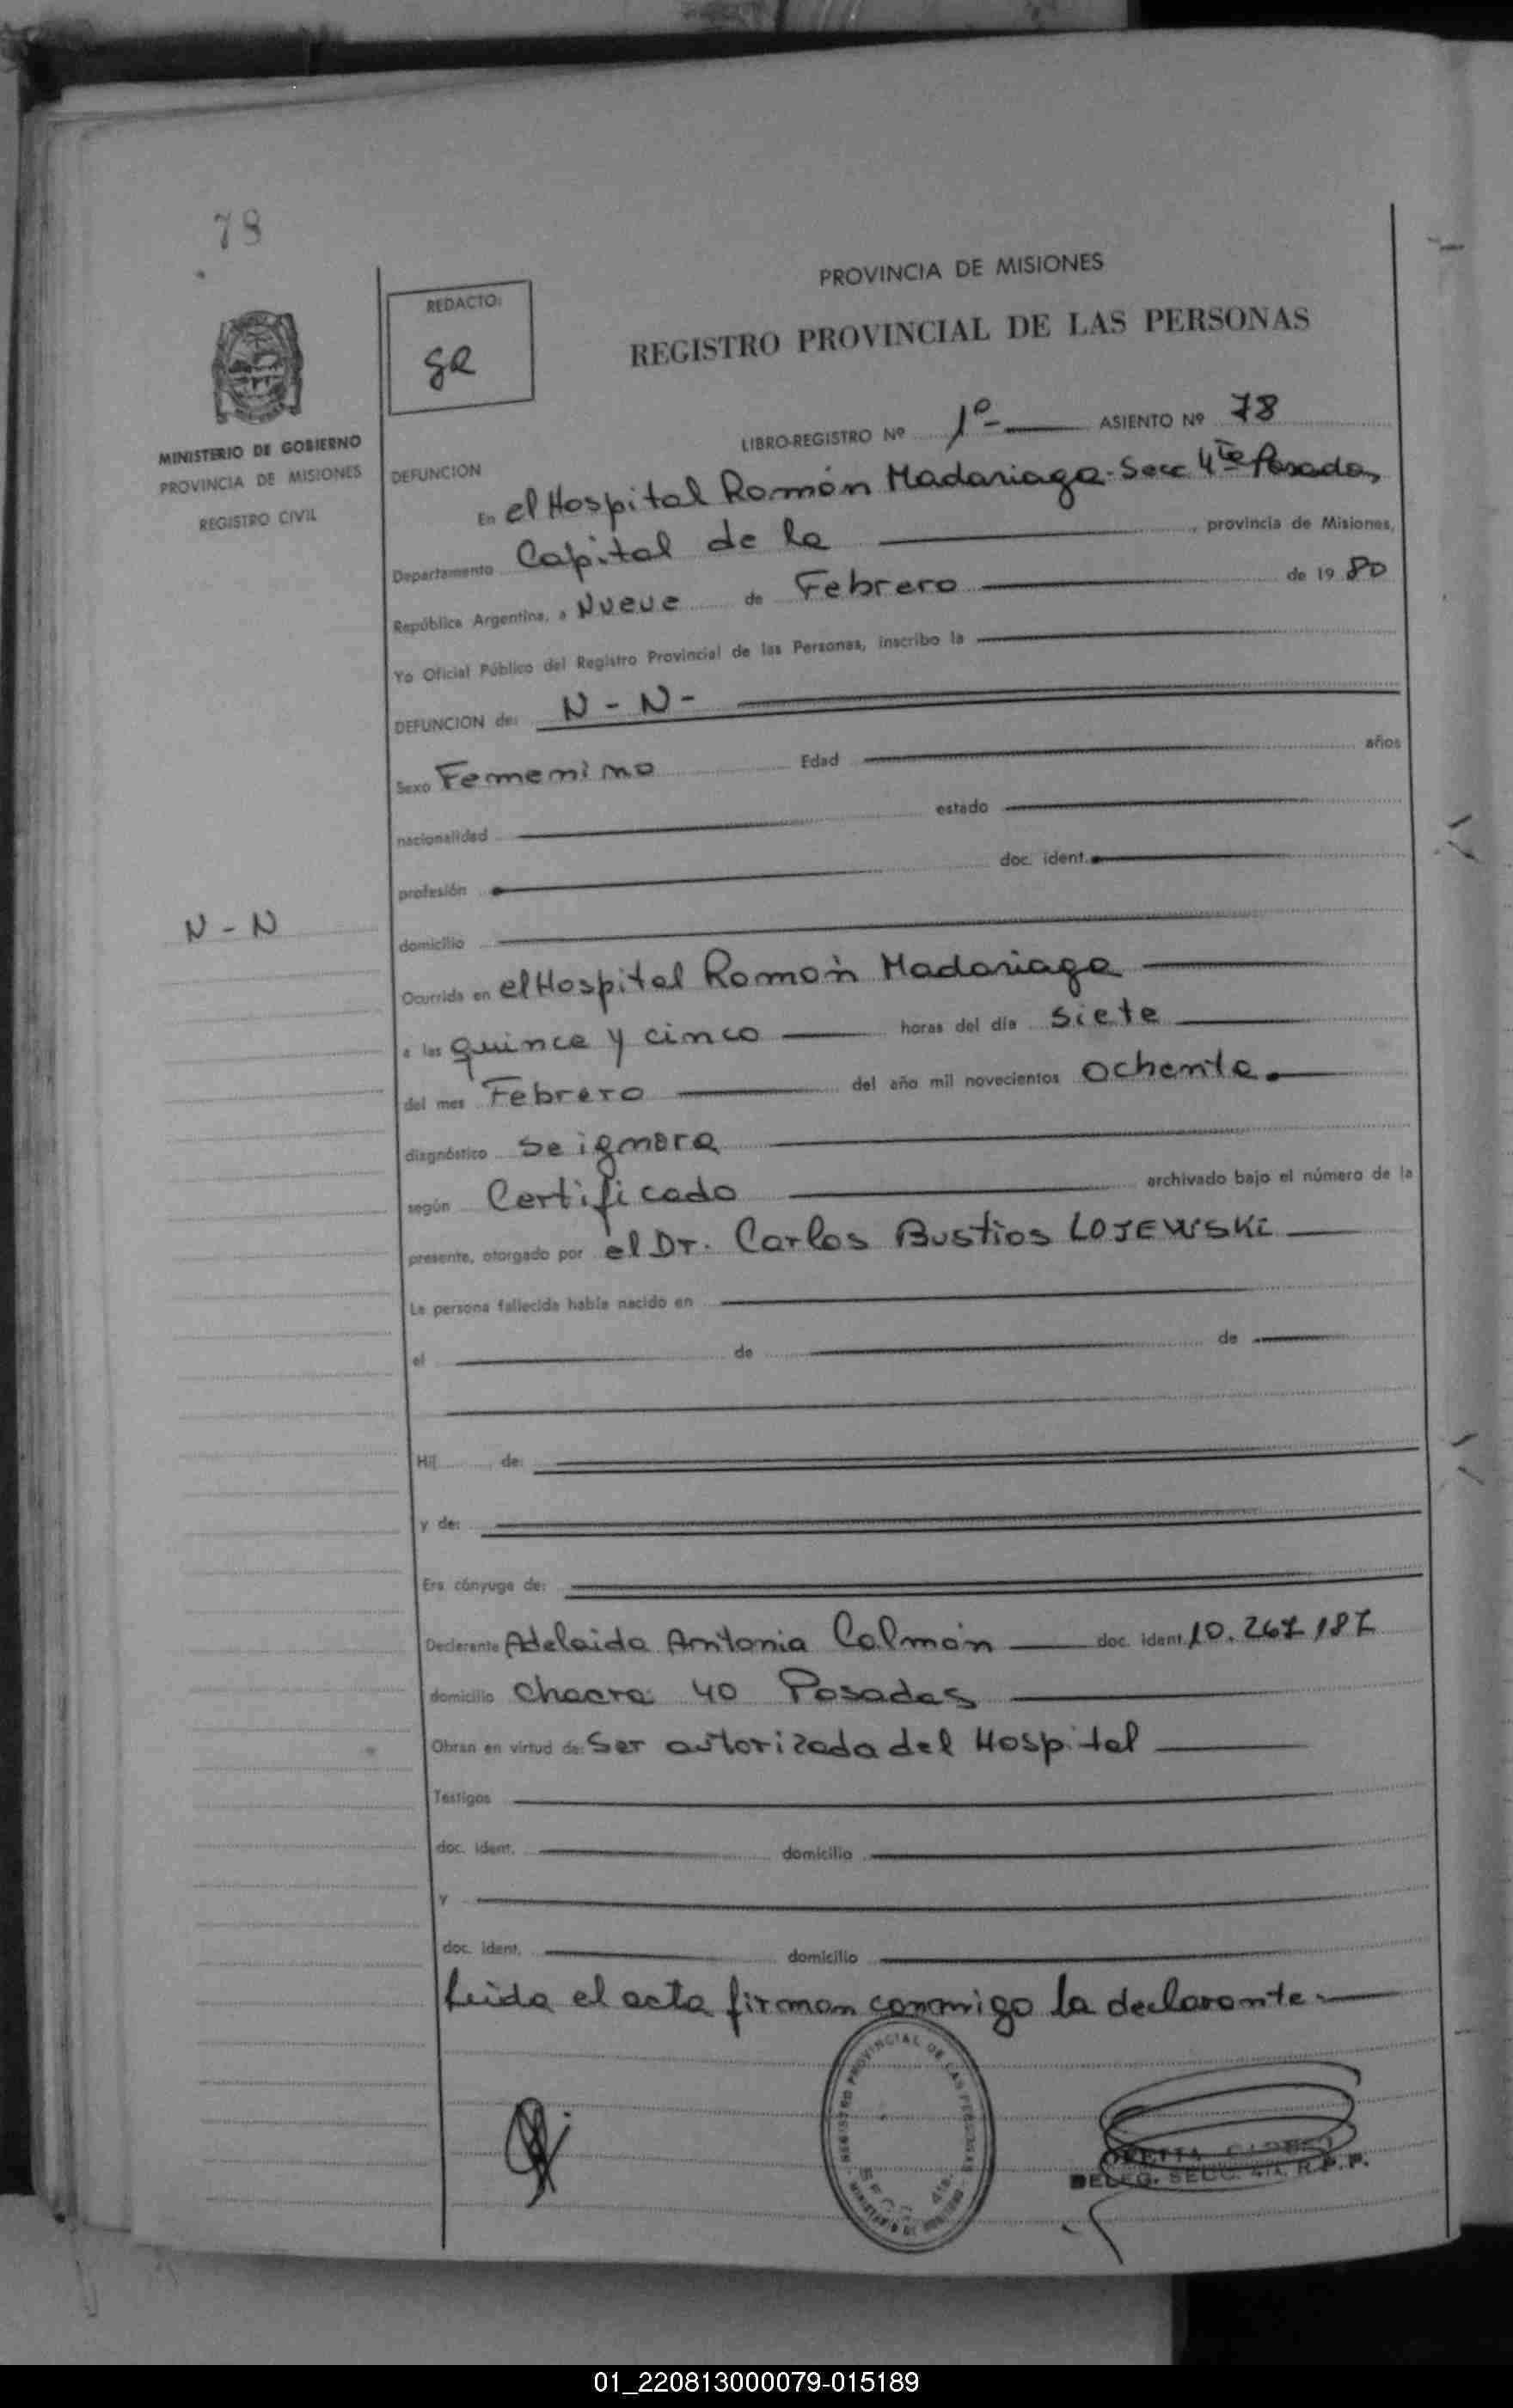 78
PROVINCIA DE MISIONES
REGISTRO PROVINCIAL DE LAS PERSONAS
REDACTO:
MINISTERIO DE GOBIERNO
PROVINCIA DE MISIONES
REGISTRO CIVIL
LIBRO-REGISTRO Nº 1º- ASIENTO Nº 78
DEFUNCION
En el Hospital Ramón Madariaga - Secc 4ta Posadas
Departamento Capital de la , provincia de Misiones,
República Argentina, a Nueve de Febrero de 19 80
Yo Oficial Público del Registro Provincial de las Personas, inscribo la
DEFUNCION de: N - N -
Sexo Femenino Edad años
nacionalidad estado
profesión doc. ident.
N - N
domicilio
Ocurrida en el Hospital Ramón Madariaga
a las quince y cinco horas del día siete
del mes Febrero del año mil novecientos ochenta.
diagnóstico se ignora
según Certificado archivado bajo el número de la
presente, otorgado por el Dr. Carlos Bustios LOJEWSKI
La persona fallecida había nacido en
el de de
Hij de:
y de:
Era cónyuge de:
Declarante Adelaida Antonia Colmán doc. ident. 10.267.187
domicilio Chacra 40 Posadas
Obran en virtud de: Ser autorizada del Hospital
Testigos
doc. ident. domicilio
y
doc. ident. domicilio
Leida el acta firman conmigo la declarante.
REGISTRO PROVINCIAL DE LAS PERSONAS
SECC. 4ta.
MINISTERIO DE GOBIERNO
DELEG. SECC. 4ta. R.P.P.
01_220813000079-015189